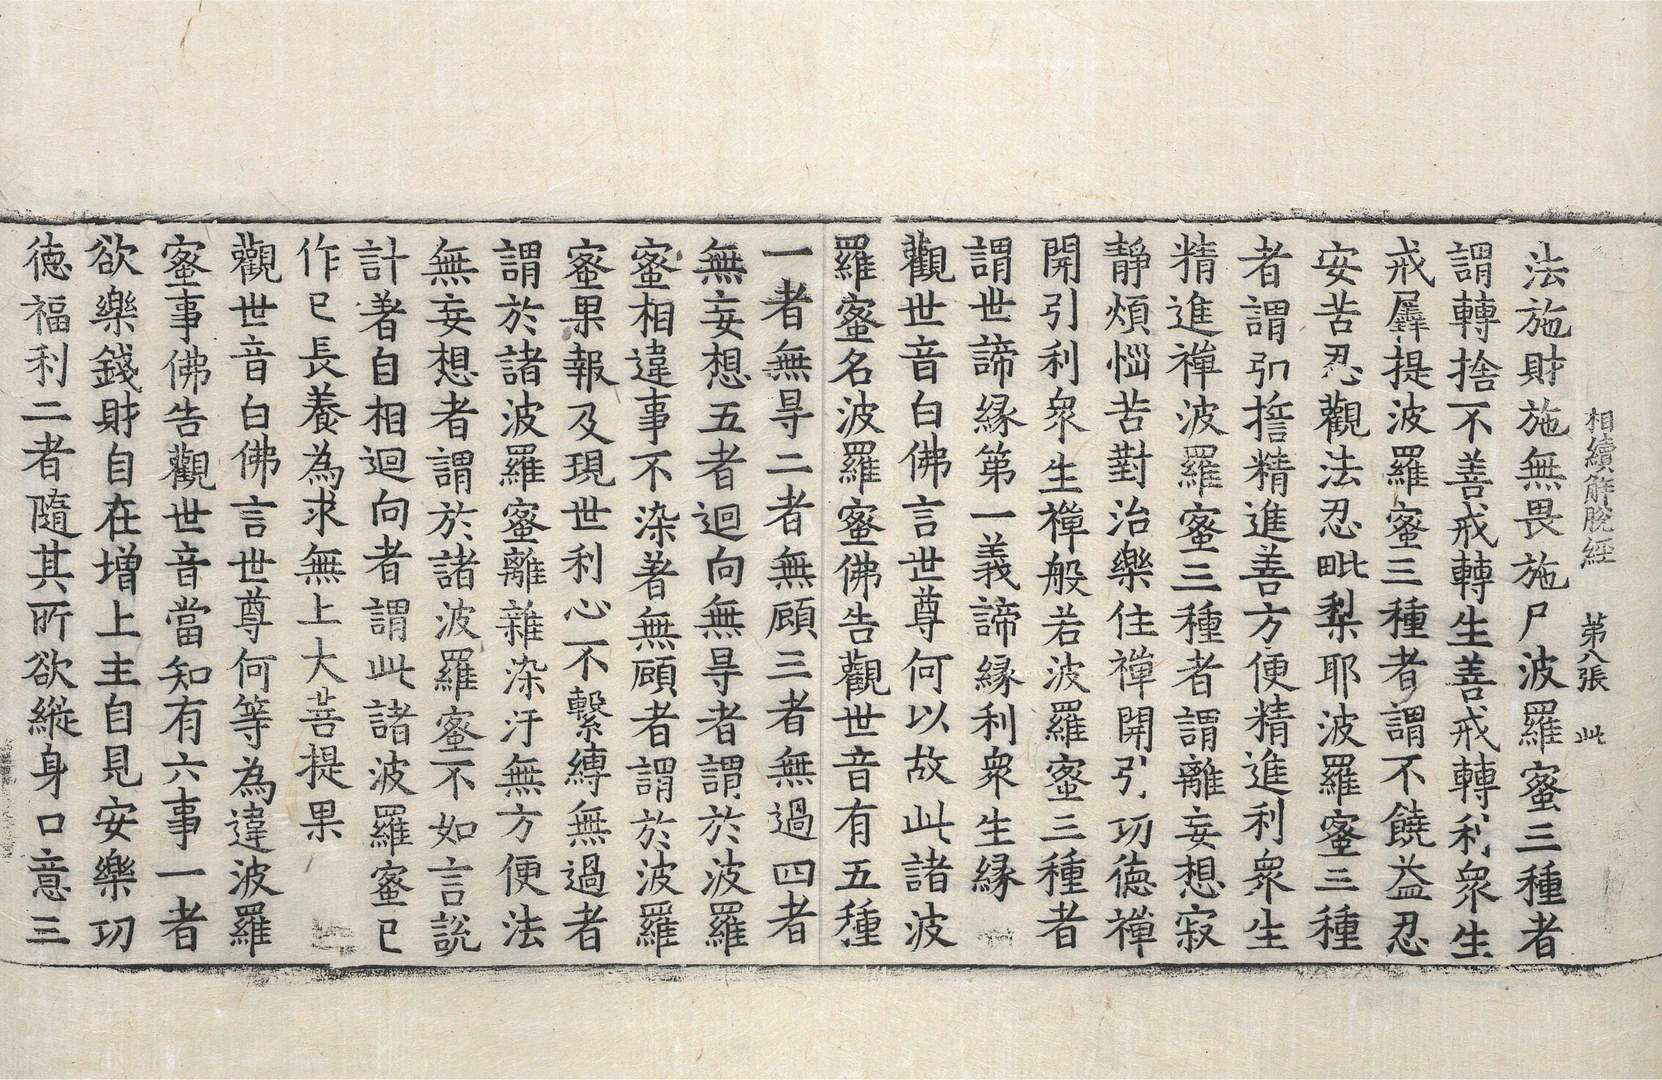 相續解脫經 第八張 此
法施財施無畏施尸波羅蜜三種者
謂轉捨不善戒轉生善戒轉利衆生
戒羼提波羅蜜三種者謂不饒益忍
安苦忍觀法忍毗梨耶波羅蜜三種
者謂弘誓精進善方便精進利衆生
精進禪波羅蜜三種者謂離妄想寂
靜煩惱苦對治樂住禪開引功德禪
開引利衆生禪般若波羅蜜三種者
謂世諦緣第一義諦緣利衆生緣
觀世音白佛言世尊何以故此諸波
羅蜜名波羅蜜佛告觀世音有五種
一者無㝵二者無顧三者無過四者
無妄想五者迴向無㝵者謂於波羅
蜜相違事不染著無顧者謂於波羅
蜜果報及現世利心不繫縛無過者
謂於諸波羅蜜離雜染汙無方便法
無妄想者謂於諸波羅蜜不如言說
計著自相迴向者謂此諸波羅蜜已
作已長養為求無上大菩提果
觀世音白佛言世尊何等為違波羅
蜜事佛告觀世音當知有六事一者
欲樂錢財自在增上主自見安樂功
德福利二者隨其所欲縱身口意三